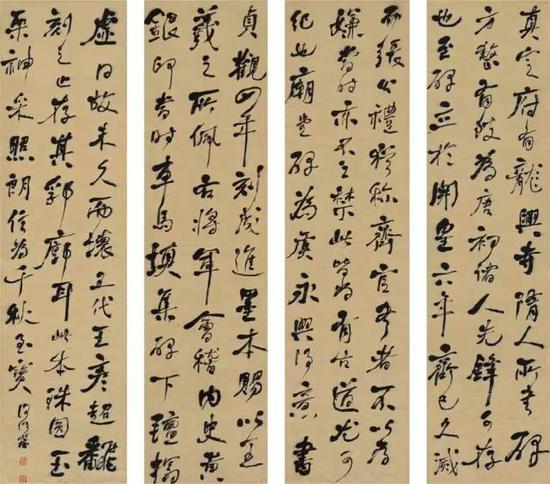 真定府有龍興寺隋人所書碑
方整有致為唐初諸人先鋒可存
也至碑立於開皇六年齊已久滅
而張公禮猶稱齊官者不以為
嫌當時亦不之禁此皆有古道尤可
紀也廟堂碑為虞永興得意書
貞觀四年刻成進墨本賜以王
羲之所佩右將軍會稽内史黄
銀印當時車馬填集碑下氈搨
虛日故未久而壞五代王彦超翻
刻之止存其郛廓耳此本珠圓玉
栗神采照朗信為千秋至寶 何紹基